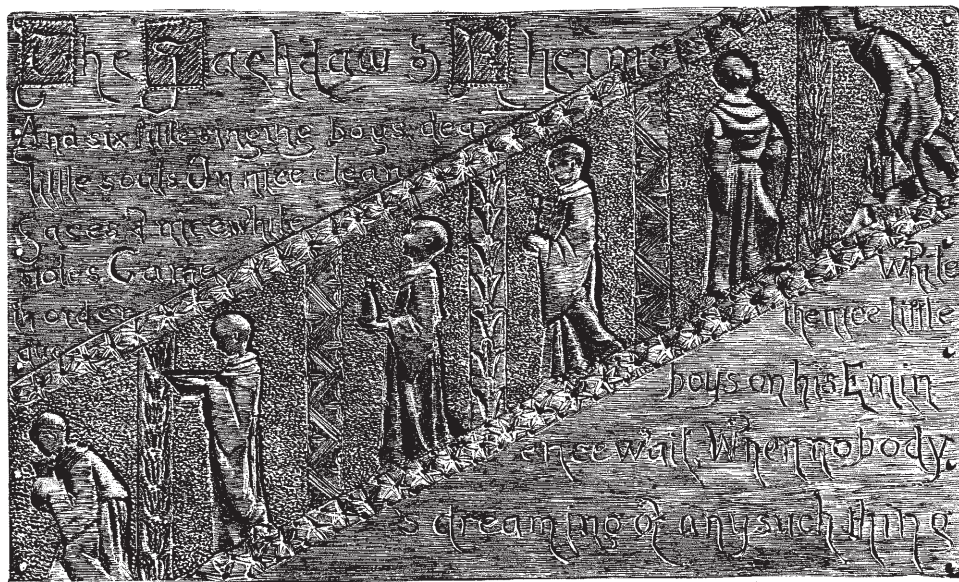 The Jackdaw of Rheims
And six little singing boys, dear
little souls In nice clean
faces & nice white
stoles Came
in order
while
the nice little
boys on his Emin
ence wait, When nobody
's dreaming of any such thing